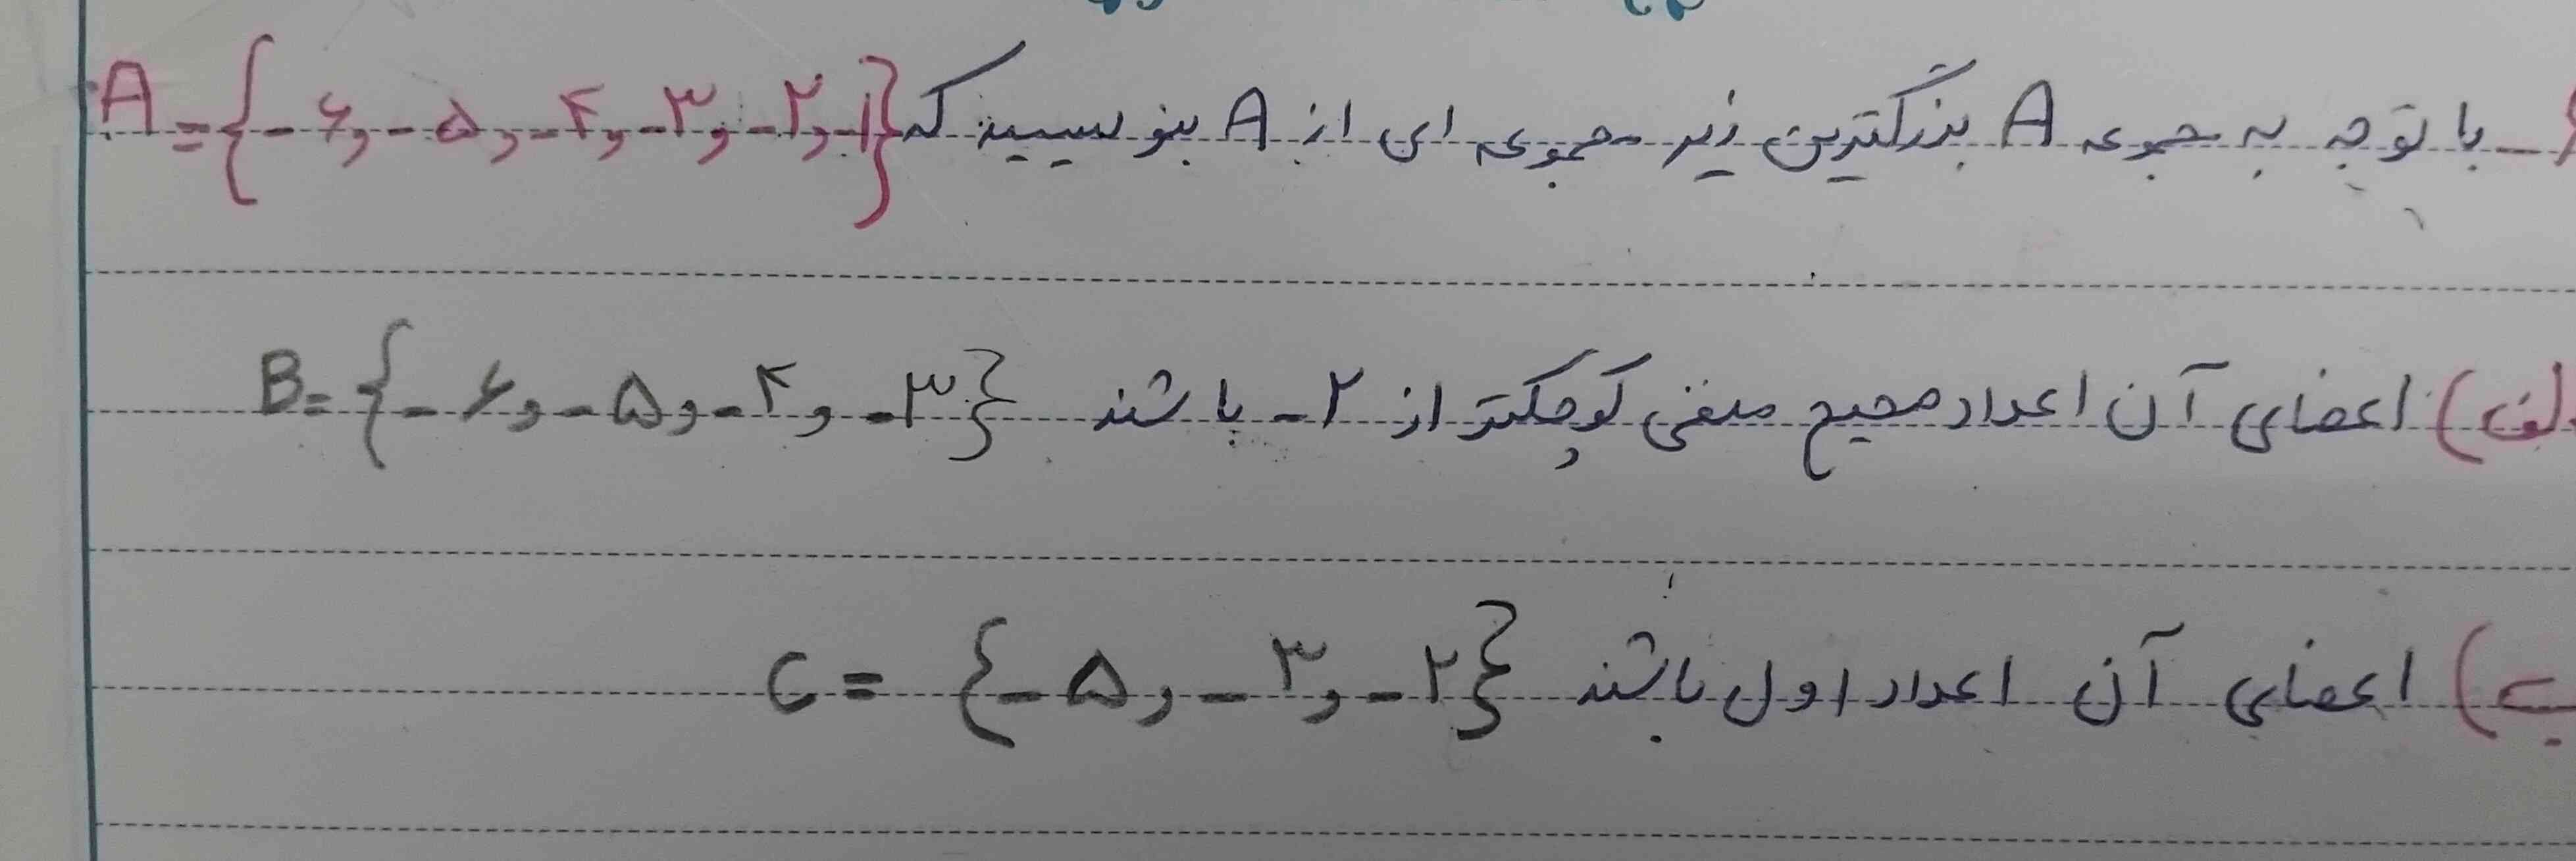 با توجه به مجموعه A بزرگترین زیر مجموعه ای از A بنویسیید که A = {-۶, -۵, -۴, -۳, -۲, -۱}
الف) اعضای آن اعداد صحیح منفی کوچکتر از ۲- باشند B = {-۶, -۵, -۴, -۳}
ب) اعضای آن اعداد اول باشند C = {-۵, -۳, -۲}